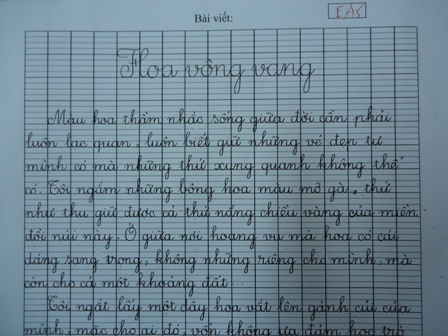 Bài viết:
EAS
Hoa vông vang
Màu hoa thầm nhắc sống giữa đời cần phải
luôn lạc quan, luôn biết giữ những vẻ đẹp tự
mình có mà những thứ xung quanh không thể
có. Tôi ngắm những bông hoa màu mỡ gà, thứ
như thu giữ được cả thứ nắng chiều vàng của miền
đồi núi này. Ở giữa nơi hoang vu mà hoa có cái
dáng sang trọng, không những riêng cho mình, mà
còn cho cả một khoảng đất...
Tôi ngắt lấy một dây hoa vắt lên gánh củi của
mình, mặc cho ai đó, vốn không ưa đám hoa trô